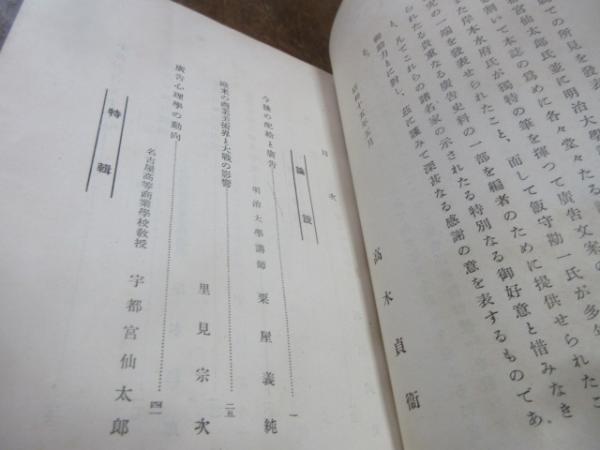 ての所見を發表
都宮仙太郎氏並に明治大學
岸本水府氏が獨特の筆を揮つて廣告文案の
割いて本誌の爲めに各々堂々たる
究の一端を發表せられたこと、而して飯守勘一氏が多年
れたる貴重なる廣告史料の一部を編者のために提供せられたこ
凡てこれらの諸名家の示されたる特別なる御好意と惜みなき
御助力とに對し、茲に謹みて深甚なる感謝の意を表するものであ
昭和十五年五月
高木貞衞
目次
論説
今後の配給と廣告
明治大學講師 粟屋義純 一
歐米の商業美術界と大戰の影響
里見宗次 二五
廣告心理學の動向
名古屋高等商業學校教授 宇都宮仙太郎 四一
特輯